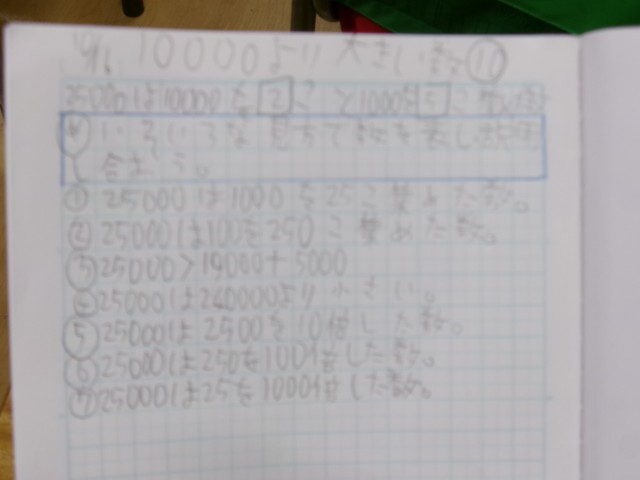 10000より大きい数⑪
25000は10000を2こと1000を5こ
いろいろな見方で数を表し
合おう。
①25000は1000を25こ集めた数。
②25000は100を250こ集めた数。
③25000>19000+5000
④25000は240000より小さい。
⑤25000は2500を10倍した数。
⑥25000は250を100倍した数。
⑦25000は25を1000倍した数。